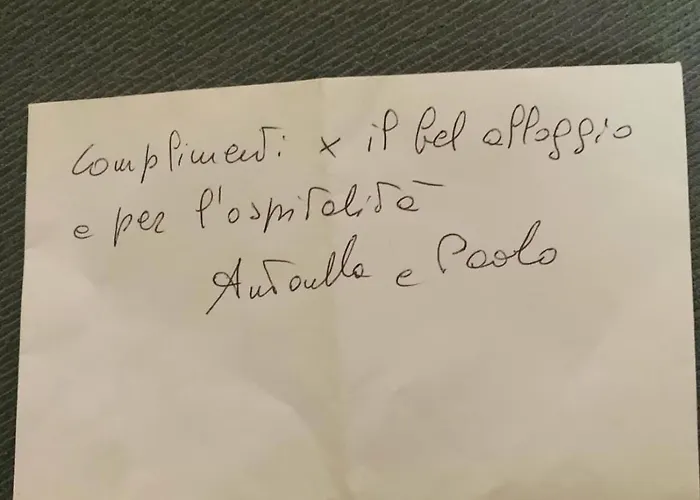 Complimenti x il bel alloggio
e per l'ospitalità
Antonella e Paolo